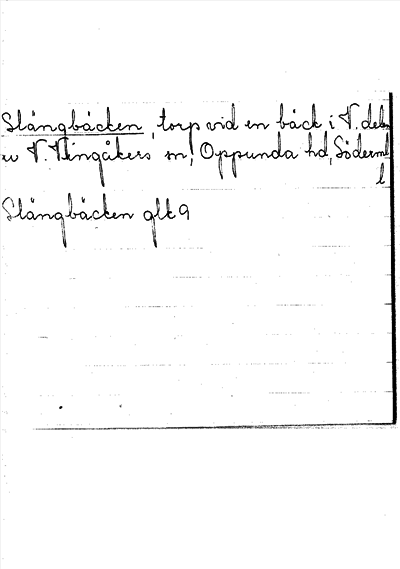 Slångbäcken, torp vid en bäck i V. delen
av V. Vingåkers sn, Oppunda hd, Söderml
l
Slångbäcken glk 9